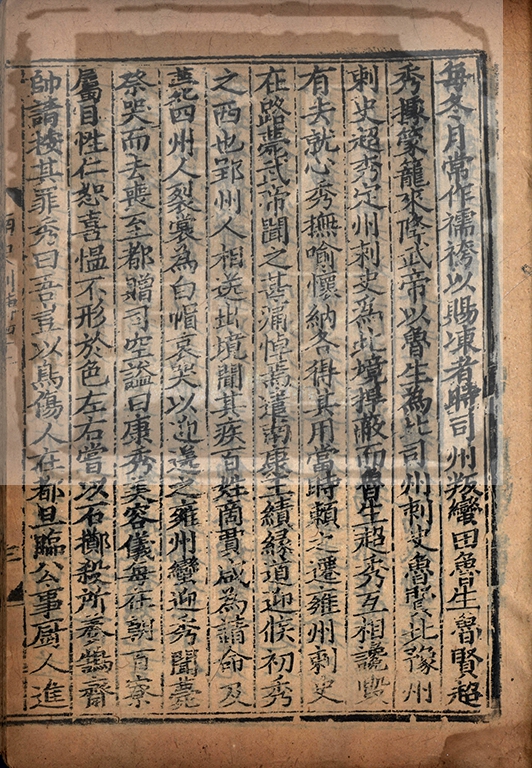 每冬月常作襦袴以賜凍者時司州叛蠻田魯生魯賢超
秀據蒙籠來降武帝以魯生為北司州刺史魯賢北豫州
刺史超秀定州刺史為北境捍蔽而魯生超秀互相讒毀
有去就心秀撫喻懷納各得其用當時賴之遷雍州刺史
在路薨武帝聞之甚痛悼焉遣南康王績緣道迎候初秀
之西也郢州人相送出境聞其疾百姓商賈咸為請命及
薨四州人裂裳為白帽哀哭以迎送之雍州蠻迎秀聞薨
祭哭而去喪至都贈司空謚曰康秀美容儀每在朝百寮
屬目性仁恕喜慍不形於色左右嘗以石擲殺所養鵠齋
帥請按其罪秀曰吾豈以鳥傷人在都旦臨公事廚人進